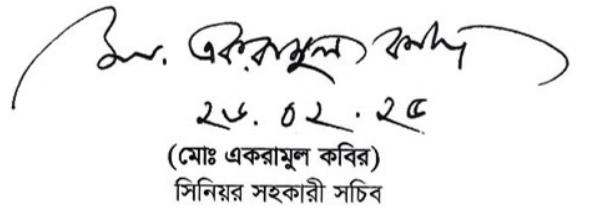 মোঃ একরামুল কবির
২৬.০২.২৫
(মোঃ একরামুল কবির)
সিনিয়র সহকারী সচিব